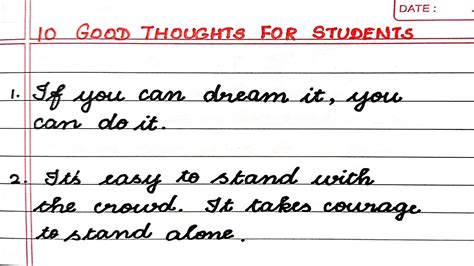 DATE :
10 GOOD THOUGHTS FOR STUDENTS
1. If you can dream it, you
can do it.
2. It's easy to stand with
the crowd. It takes courage
to stand alone.